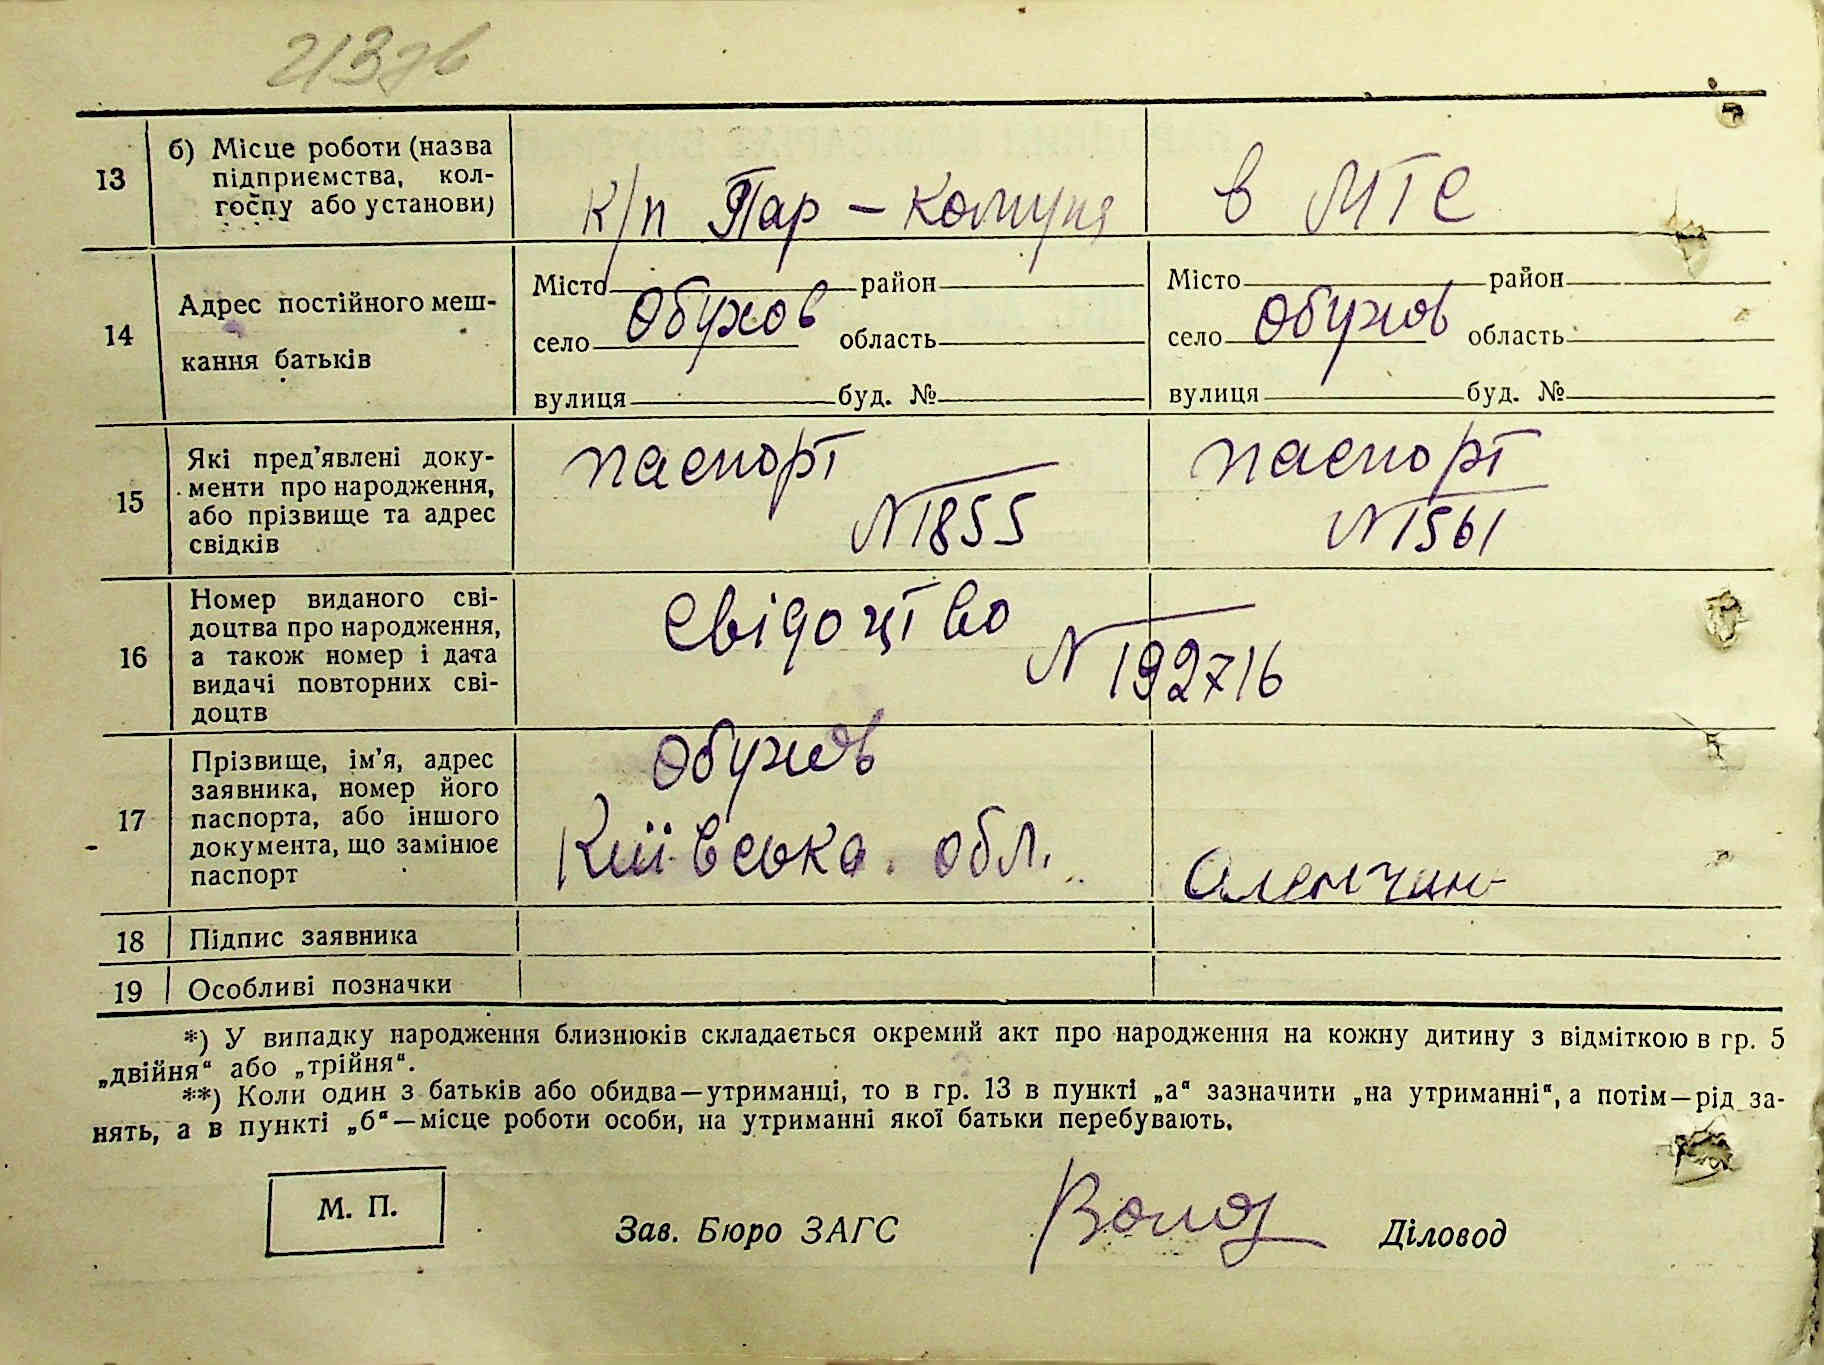 13
б) Місце роботи (назва
підприємства, кол-
госпу або установи)
к/п Пар - Комуна
в МТС
14
Адрес постійного меш-
кання батьків
Місто район
село Обухов область
вулиця буд. №
Місто район
село Обухов область
вулиця буд. №
15
Які пред'явлені доку-
менти про народження,
або прізвище та адрес
свідків
паспорт
N 1855
паспорт
N 1561
16
Номер виданого сві-
доцтва про народження,
а також номер і дата
видачі повторних сві-
доцтв
Свідоцтво
N 192716
17
Прізвище, ім'я, адрес
заявника, номер його
паспорта, або іншого
документа, що замінює
паспорт
Обухов
Київська обл.
18 Підпис заявника
19 Особливі позначки
*) У випадку народження близнюків складається окремий акт про народження на кожну дитину з відміткою в гр. 5
„двійня“ або „трійня“.
**) Коли один з батьків або обидва—утриманці, то в гр. 13 в пункті „а“ зазначити „на утриманні“, а потім—рід за-
нять, а в пункті „б“—місце роботи особи, на утриманні якої батьки перебувають.
М. П.
Зав. Бюро ЗАГС
Діловод